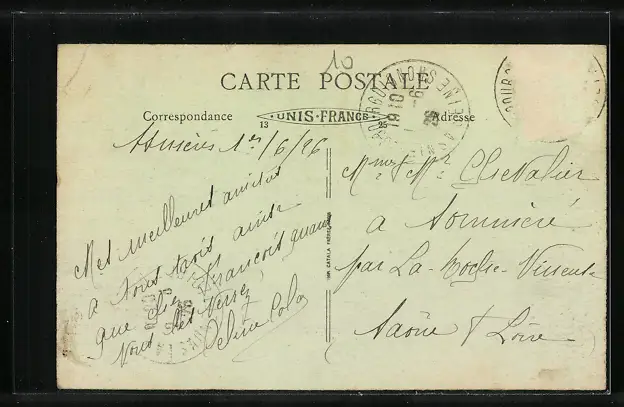 10
CARTE POSTALE
Correspondance
UNIS-FRANCE
13 25
Adresse
Asnières 1er/6/26
Mes meilleures amitiés
à tous trois ainsi
que chez François quand
vous les verrez
Celine Cola
IMP. CATALA FRÈRES
Mme & Mr Chevalier
à Sommeré
par La-Roche-Vineuse
Saône & Loire